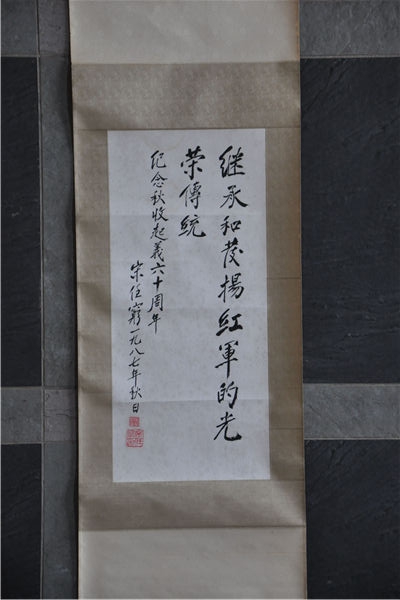 继承和发揚红軍的光
荣傳統
纪念秋收起義六十周年
宋任窮一九八七年秋日